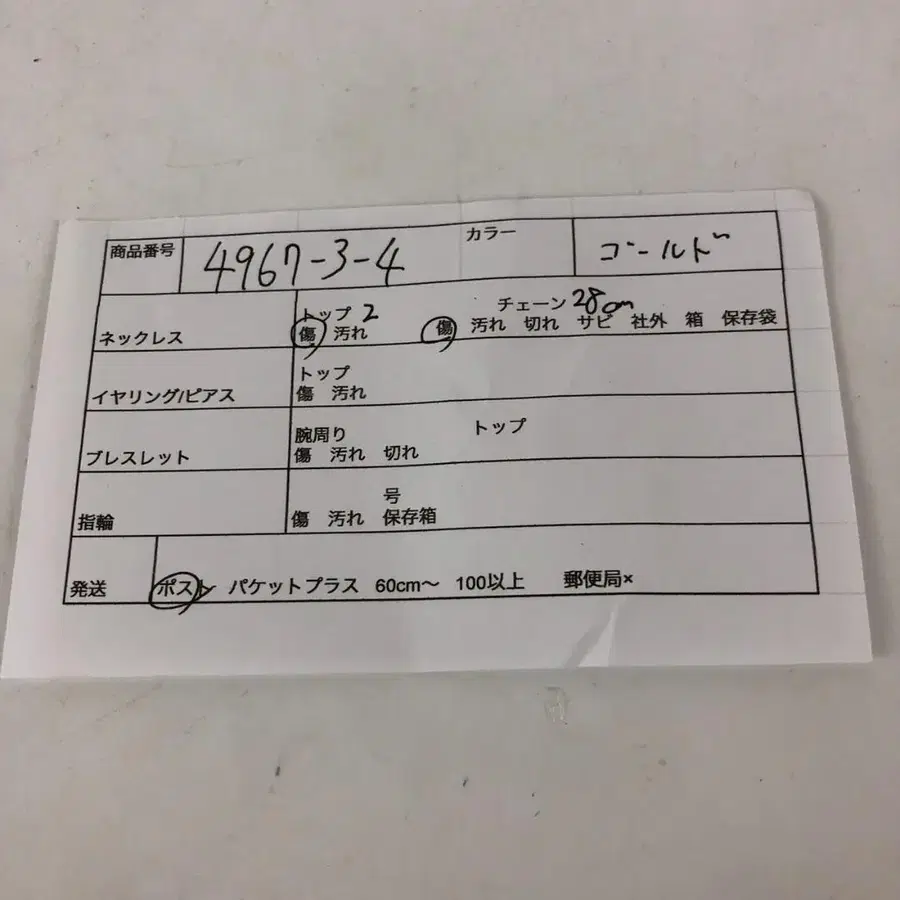 商品番号 4967-3-4 カラー ゴールド
ネックレス トップ 2 チェーン 28cm
傷 汚れ 傷 汚れ 切れ サビ 社外 箱 保存袋
イヤリング/ピアス トップ
傷 汚れ
ブレスレット 腕周り トップ
傷 汚れ 切れ
指輪 号
傷 汚れ 保存箱
発送 ポスト パケットプラス 60cm〜 100以上 郵便局×